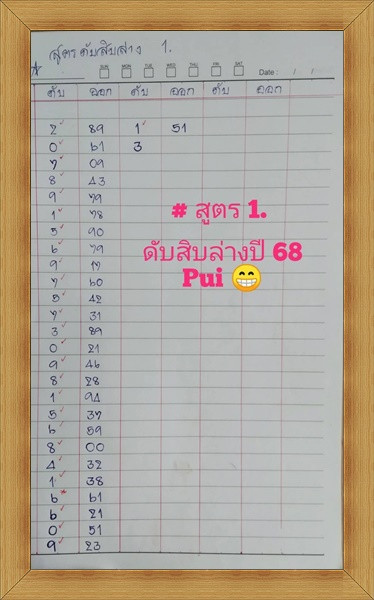 สูตรดับสิบล่าง 1.
SUN MON TUE WED THU FRI SAT Date : / /
ดับ ออก ดับ ออก ดับ ออก
2 89 1 51
0 61 3
7 09
8 43
9 79
1 78
5 90
6 79
9 17
7 60
5 42
7 31
3 89
0 21
9 46
8 28
1 94
5 37
6 59
8 00
4 32
1 38
6 61
6 21
0 51
9 23
# สูตร 1.
ดับสิบล่างปี 68
Pui 😁